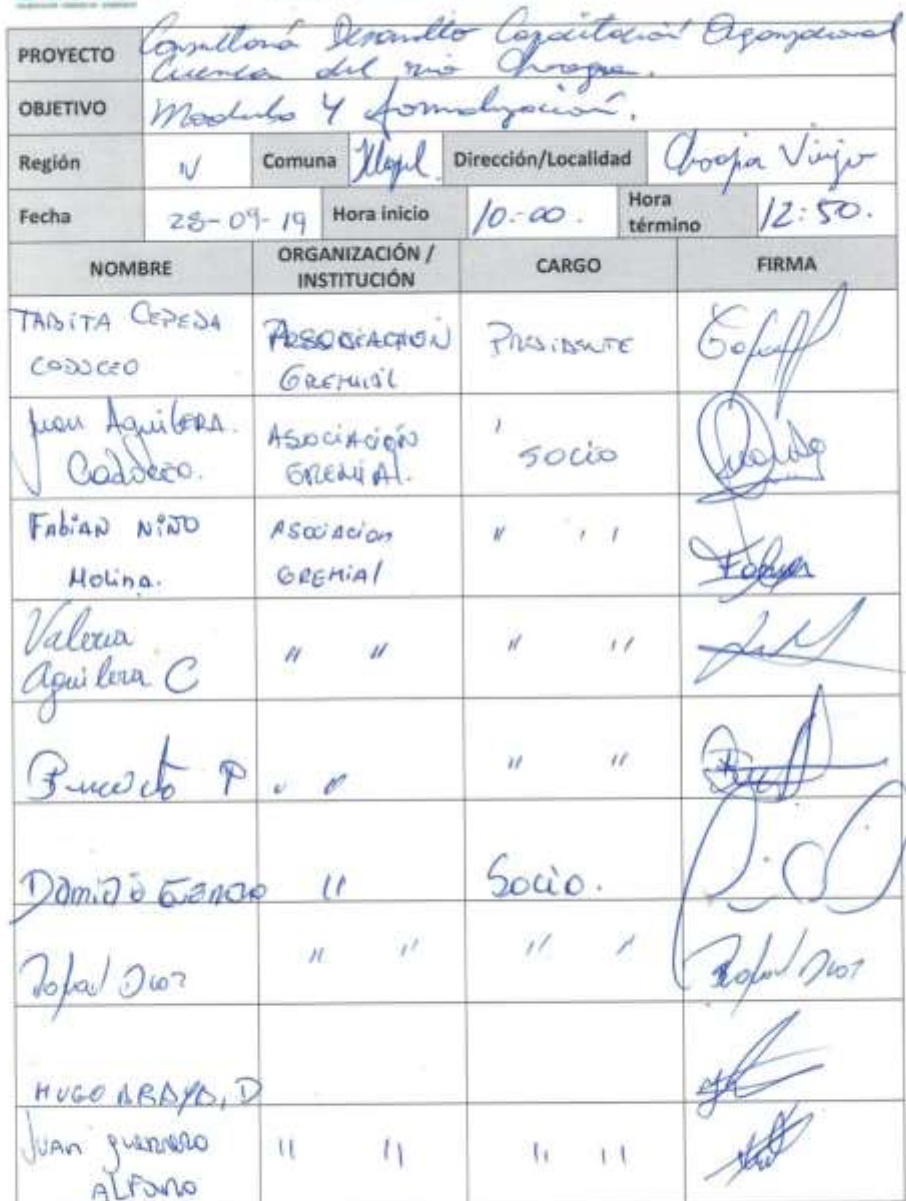 PROYECTO Consultoria Desarrollo Capacitación Organizacional
Cuenca del rio Choapa.
OBJETIVO Modulo 4 formalización.
Región IV Comuna Illapel Dirección/Localidad Choapa Viejo
Fecha 28-09-19 Hora inicio 10:00. Hora término 12:50.
NOMBRE ORGANIZACIÓN / INSTITUCIÓN CARGO FIRMA
TABITA CEPEDA
CODOCEO
ASOCIACION
GREMIAL
PRESIDENTE
Juan AguilERA.
Codoceo.
ASOCIACIÓN
GREMIAL.
SOCIO
FABIAN NIÑO
Molina.
ASOCIACION
GREMIAL
" "
Valeria
Aguilera C
" "
" "
P
" "
" "
"
Socio.
Rafael Diaz
" "
" "
Rafael Diaz
HUGO ARAYA, D
JUAN guerrero
ALFARO
" "
" "